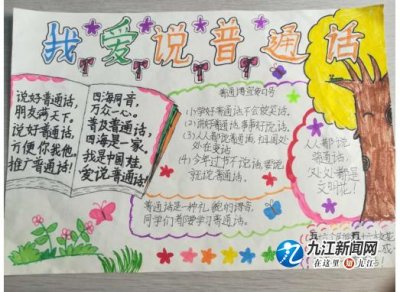 我爱说普通话
说好普通话,
朋友满天下。
说好普通话,
方便你我他。
推广普通话!
四海同音,
万众一心。
普及普通话,
四海是一家。
我是中国娃,
爱说普通话!
普通话宣传口号
(1)学好普通话,不会被笑话。
(2)讲好普通话,事事好说话。
(3)人人都说普通话,祖国处
处在爱话
(4)今年过节不说话,要说
就说普通话。
人人都说
普通话,
人人都是
文明花!
普通话是一种礼貌的语言,
同学们都要学习普通话。
九江新闻网
在这里 知九江